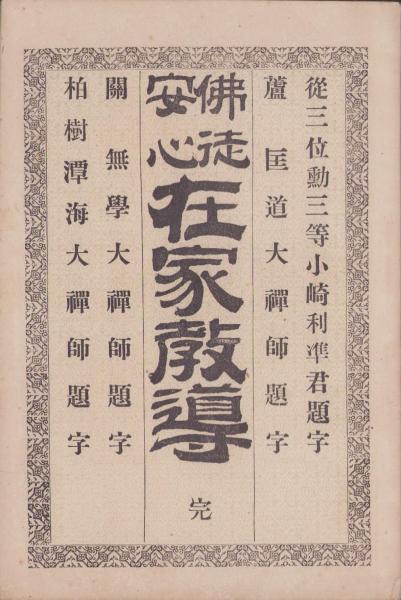 從三位勳三等小崎利準君題字
蘆匡道大禪師題字
佛徒
安心
在家教導
完
關無學大禪師題字
柏樹潭海大禪師題字